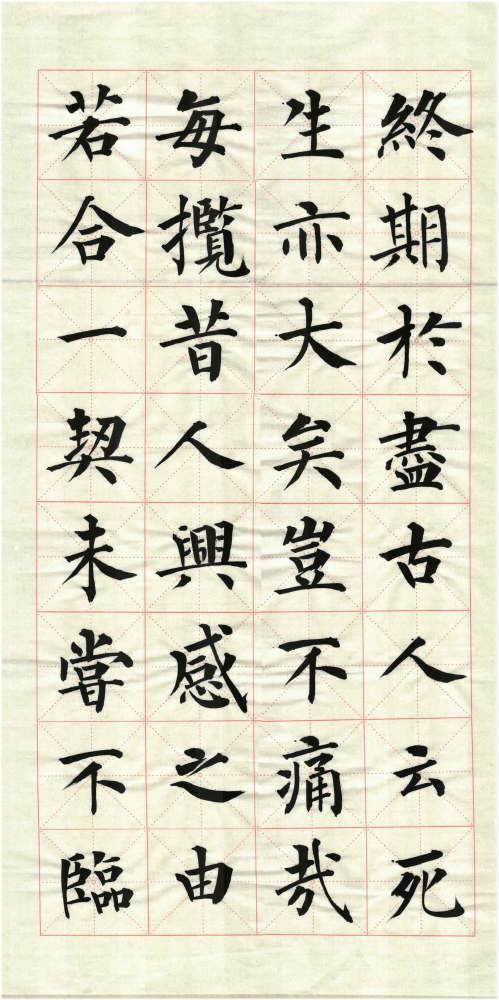 終期於盡古人云死
生亦大矣豈不痛哉
每攬昔人興感之由
若合一契未嘗不臨